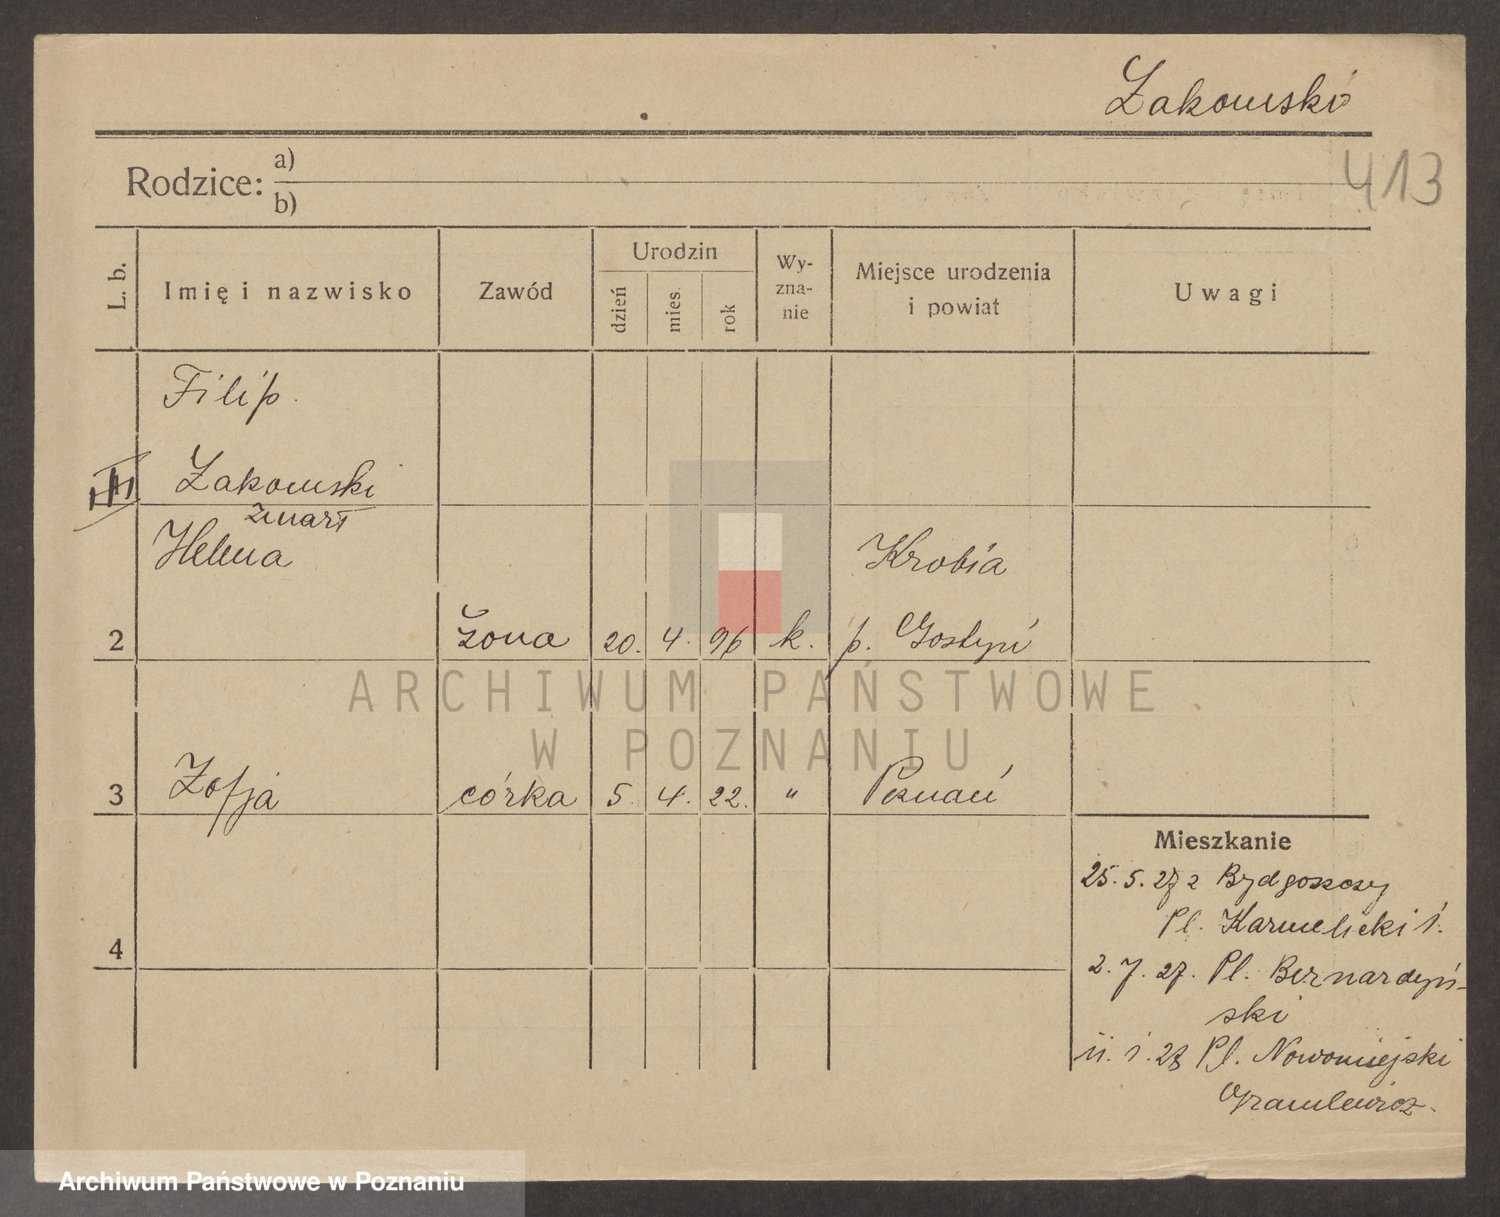 Żakowski
413
Rodzice: a)
b)
L. b.
Imię i nazwisko
Zawód
Urodzin
dzień
mies.
rok
Wy-
zna-
nie
Miejsce urodzenia
i powiat
Uwagi
Filip.
Żakowski
zmarł
Helena
Krobia
2 żona 20. 4. 96 k. p. Gostyń
3 Zofja córka 5. 4. 22. " Poznań
4
Mieszkanie
25. 5. 27 z Bydgoszczy
Pl. Karmelicki 1.
2. 7. 27. Pl. Bernardyń-
ski
11. 1. 28 Pl. Nowomiejski
ARCHIWUM PAŃSTWOWE
W POZNANIU
Archiwum Państwowe w Poznaniu